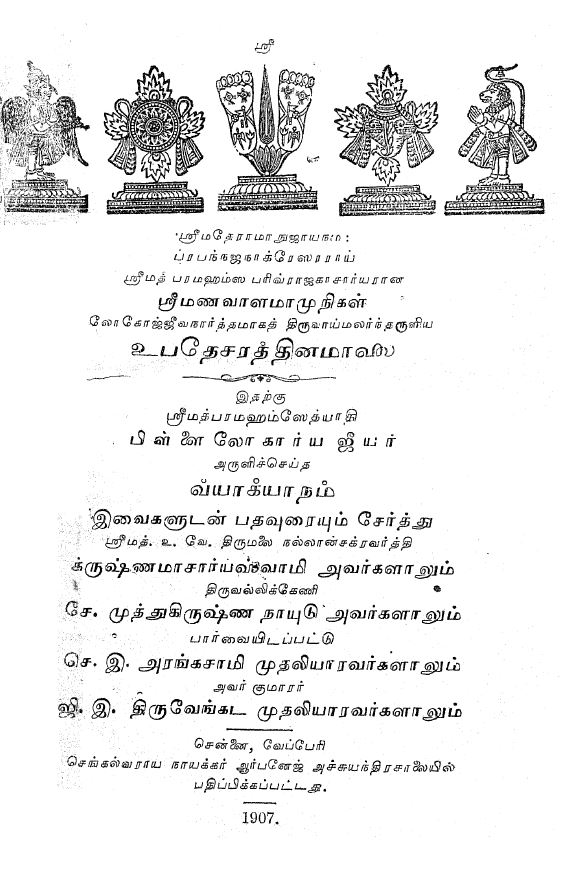 ஸ்ரீ
ஸ்ரீமதேராமாநுஜாயநம:
ப்ரபந்நஜநாக்ரேஸரராய்
ஸ்ரீமத் பரமஹம்ஸ பரிவ்ராஜகாசார்யரான
ஸ்ரீமணவாளமாமுநிகள்
லோகோஜ்ஜீவநார்த்தமாகத் திருவாய்மலர்ந்தருளிய
உபதேசரத்தினமாலை
இதற்கு
ஸ்ரீமத்பரமஹம்ஸேத்யாதி
பிள்ளை லோகார்ய ஜீயர்
அருளிச்செய்த
வ்யாக்யாநம்
இவைகளுடன் பதவுரையும் சேர்த்து
ஸ்ரீமத். உ. வே. திருமலை நல்லான்சக்ரவர்த்தி
க்ருஷ்ணமாசார்யஸ்வாமி அவர்களாலும்
திருவல்லிக்கேணி
சே. முத்துகிருஷ்ண நாயுடு அவர்களாலும்
பார்வையிடப்பட்டு
செ. இ. அரங்கசாமி முதலியாரவர்களாலும்
அவர் குமாரர்
ஜி. இ. திருவேங்கட முதலியாரவர்களாலும்
சென்னை, வேப்பேரி
செங்கல்வராய நாயக்கர் ஆர்பனேஜ் அச்சுயந்திரசாலையில்
பதிப்பிக்கப்பட்டது.
1907.